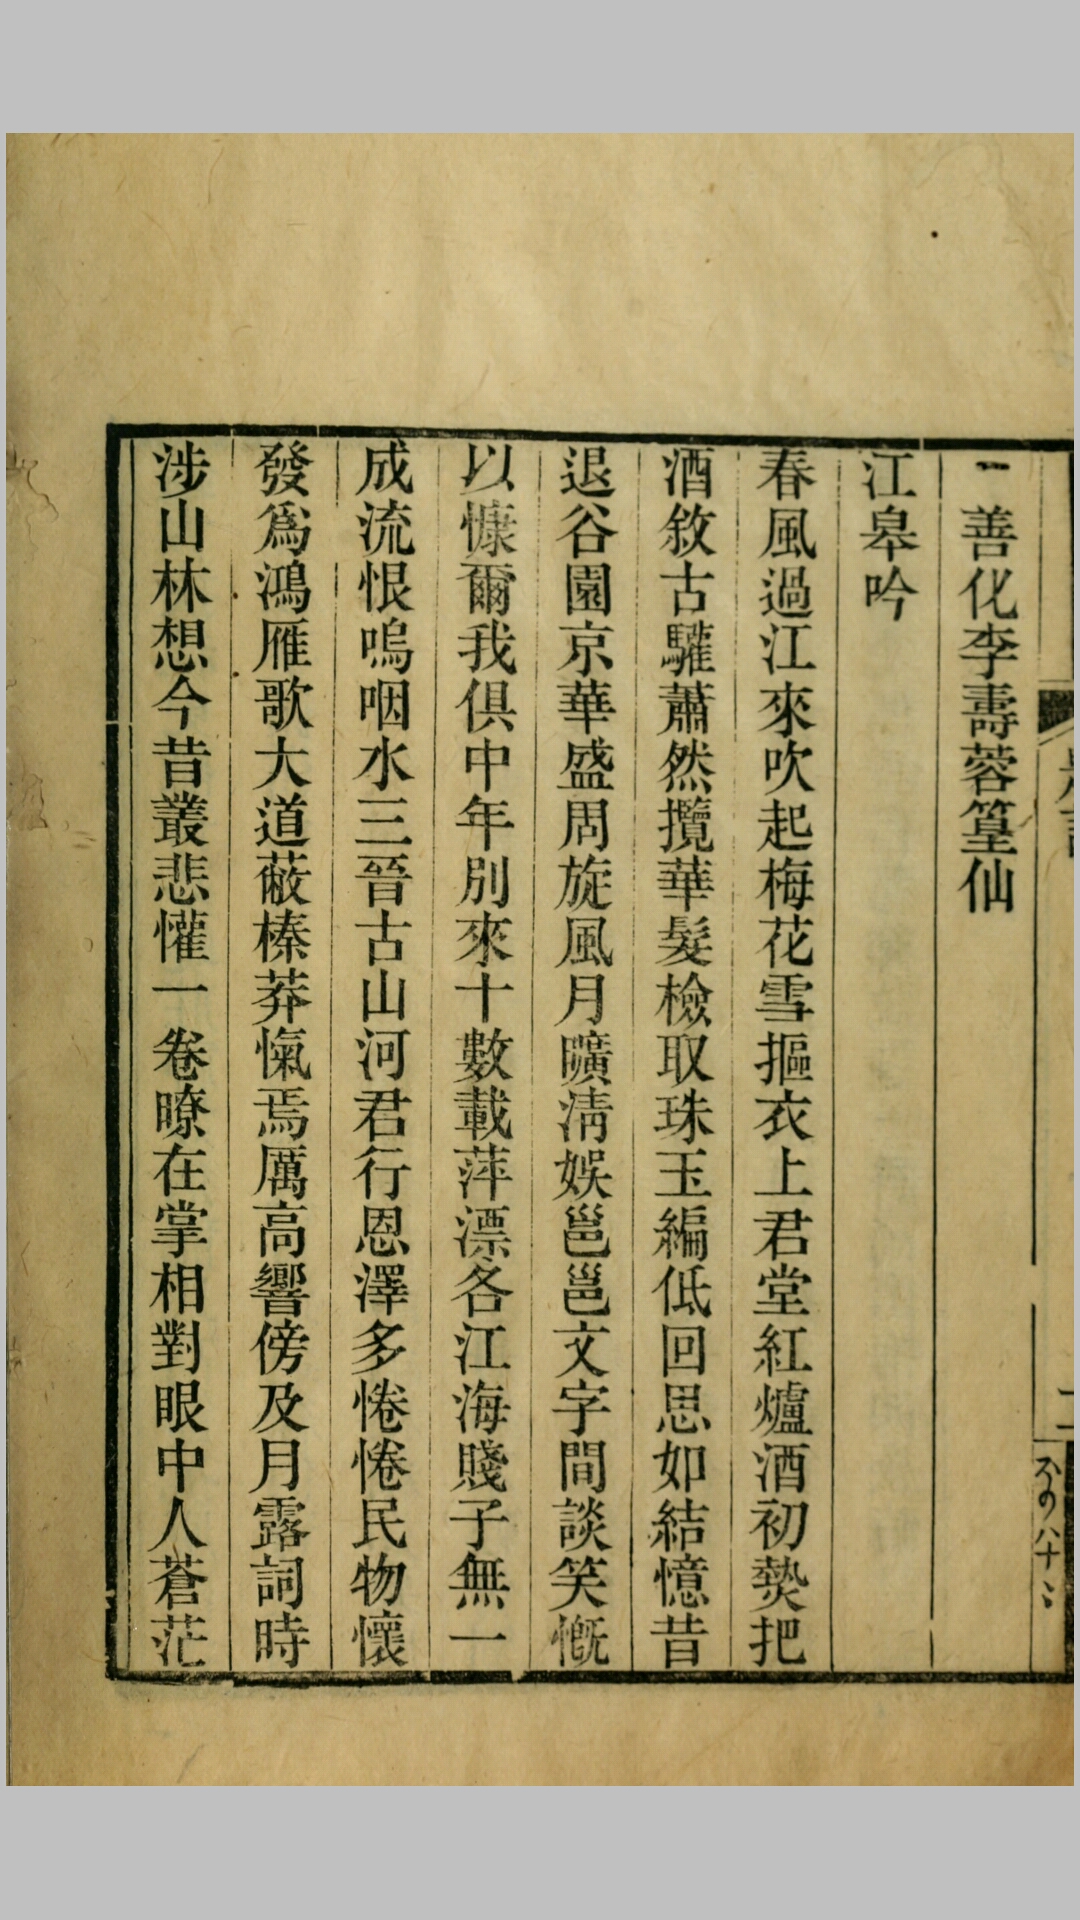 善化李壽蓉篁仙
江皋吟
春風過江來吹起梅花雪摳衣上君堂紅爐酒初爇把
酒敘古驩蕭然攬華髮檢取珠玉編低回思如結憶昔
退谷園京華盛周旋風月曠清娛邕邕文字間談笑慨
以慷爾我俱中年別來十數載萍漂各江海賤子無一
成流恨嗚咽水三晉古山河君行恩澤多惓惓民物懷
發爲鴻雁歌大道蔽榛莽愾焉厲高響傍及月露詞時
涉山林想今昔叢悲懽一卷暸在掌相對眼中人蒼茫